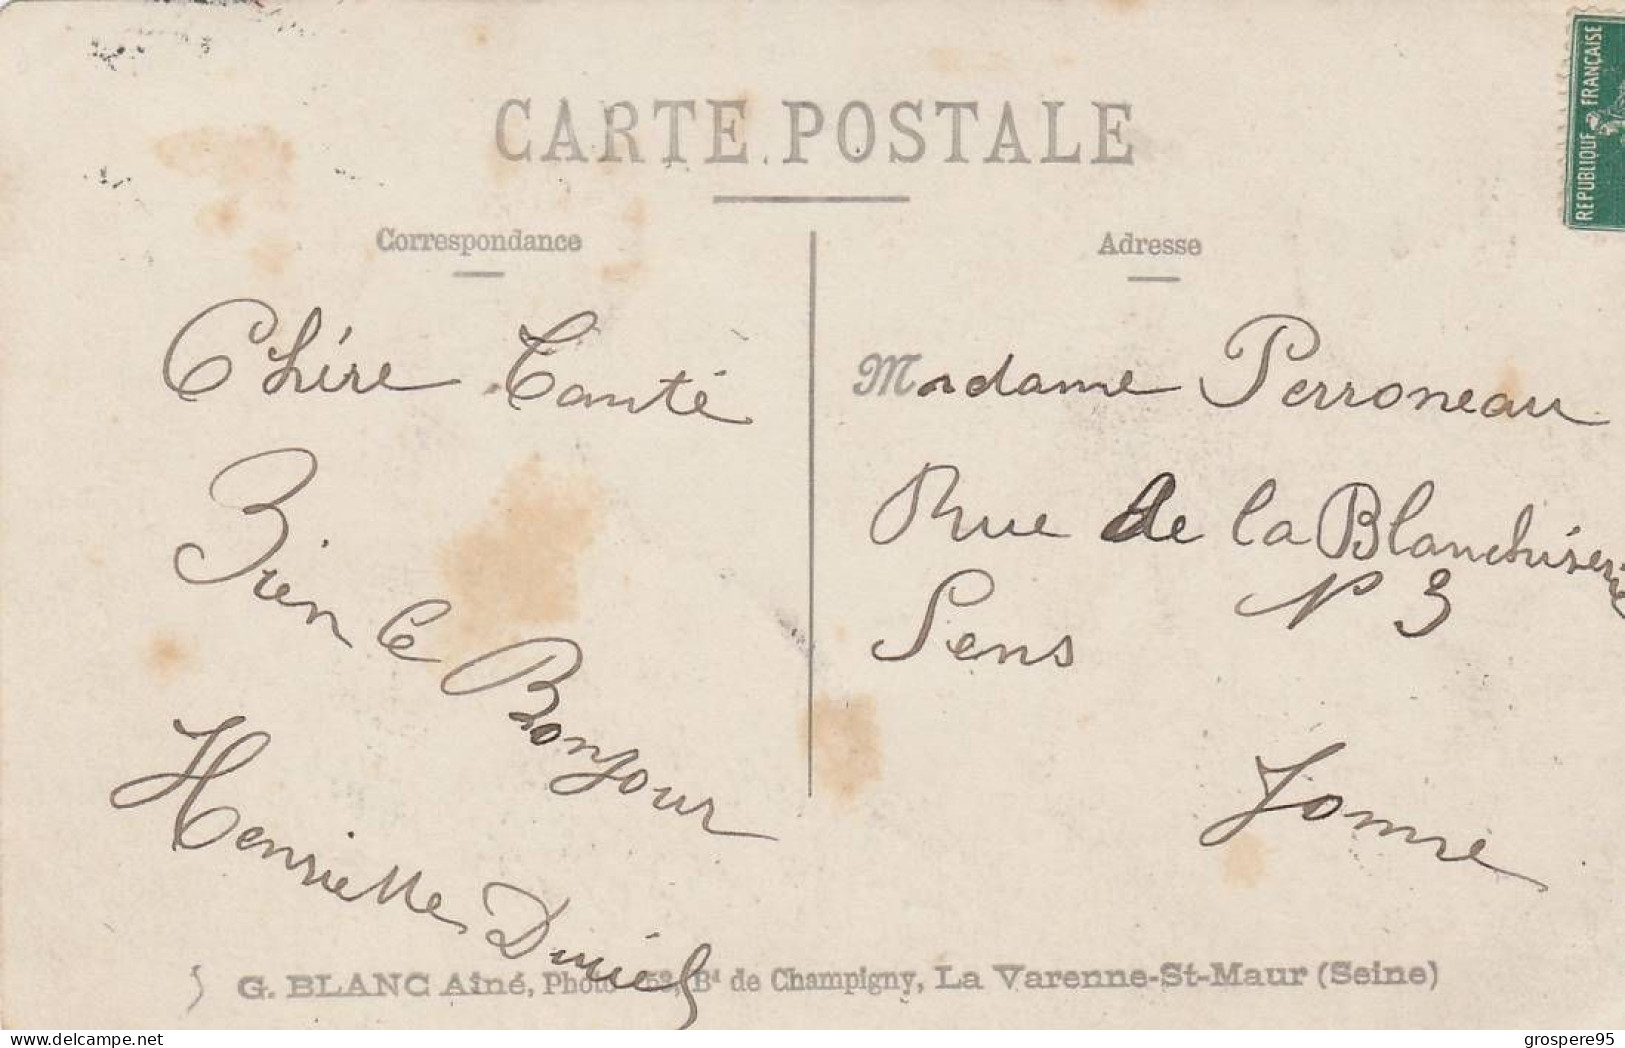 CARTE POSTALE
Correspondance
Adresse
REPUBLIQUE FRANÇAISE
Chére Tanté
Bien le Bonjour
Henriette
Madame Perroneau
Rue de la Blanchiserie
N 3
Sens
Yonne
G. BLANC Aîné, Photo 53, Bd de Champigny, La Varenne-St-Maur (Seine)
delcampe.net
grospere95